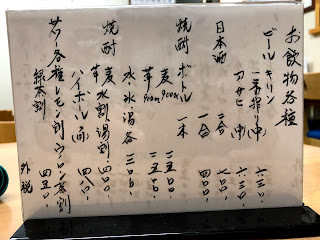 お飲物各種
ビール キリン一番搾り(中) 六三〇、
アサヒ(中) 六三〇、
日本酒 二合 七〇〇、
一合 四〇〇、
焼酎ボトル 一本
麦 900ml 二五〇〇、
芋 900ml 二五〇〇、
水、氷、湯 各 三〇〇、
焼酎 麦 水割 湯割 四〇〇、
芋 ハイボール(角) 四八〇、
サワー各種 レモン割 ウーロン茶割 四五〇、
緑茶割 外税